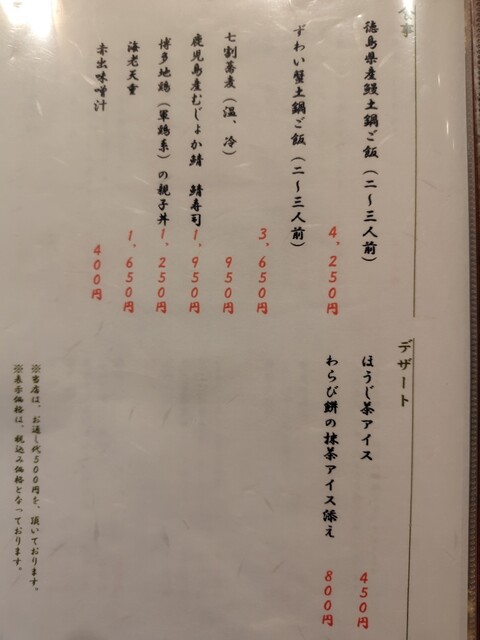 食事
徳島県産鰻土鍋ご飯(二〜三人前)
4,250円
ずわい蟹土鍋ご飯(二〜三人前)
3,650円
七割蕎麦(温、冷)
950円
鹿児島産むじょか鯖 鯖寿司
1,950円
博多地鶏(軍鶏系)の親子丼
1,250円
海老天重
1,650円
赤出味噌汁
400円
デザート
ほうじ茶アイス
450円
わらび餅の抹茶アイス添え
800円
※当店は、お通し代500円を、頂いております。
※表示価格は、税込み価格となっております。